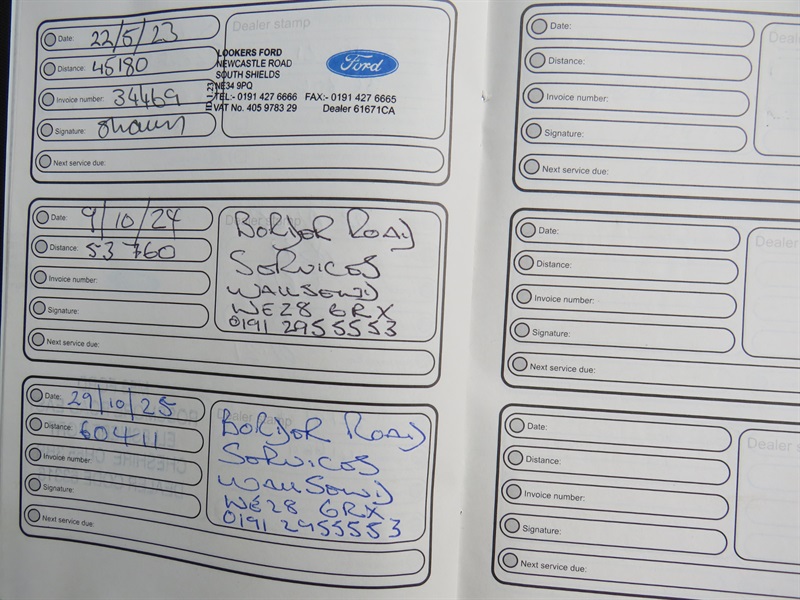 Date: 22/5/23
Distance: 45180
Invoice number: 34469
Signature: Shaun
Next service due:
Dealer stamp
LOOKERS FORD
NEWCASTLE ROAD
SOUTH SHIELDS
NE34 9PQ
TEL:- 0191 427 6666 FAX:- 0191 427 6665
VAT No. 405 9783 29 Dealer 61671CA
Ford
Date: 9/10/24
Distance: 53760
Invoice number:
Signature:
Next service due:
Dealer stamp
BORDOR ROAD
SORVICOS
WALLSOND
NE28 6RX
0191 2955553
Date: 29/10/25
Distance: 60411
Invoice number:
Signature:
Next service due:
Dealer stamp
BORDOR ROAD
SORVICOS
WALLSOND
NE28 6RX
0191 2955553
Date:
Distance:
Invoice number:
Signature:
Next service due:
Deale
Date:
Distance:
Invoice number:
Signature:
Next service due:
Dealer
Date:
Distance:
Invoice number:
Signature:
Next service due:
Dealer s